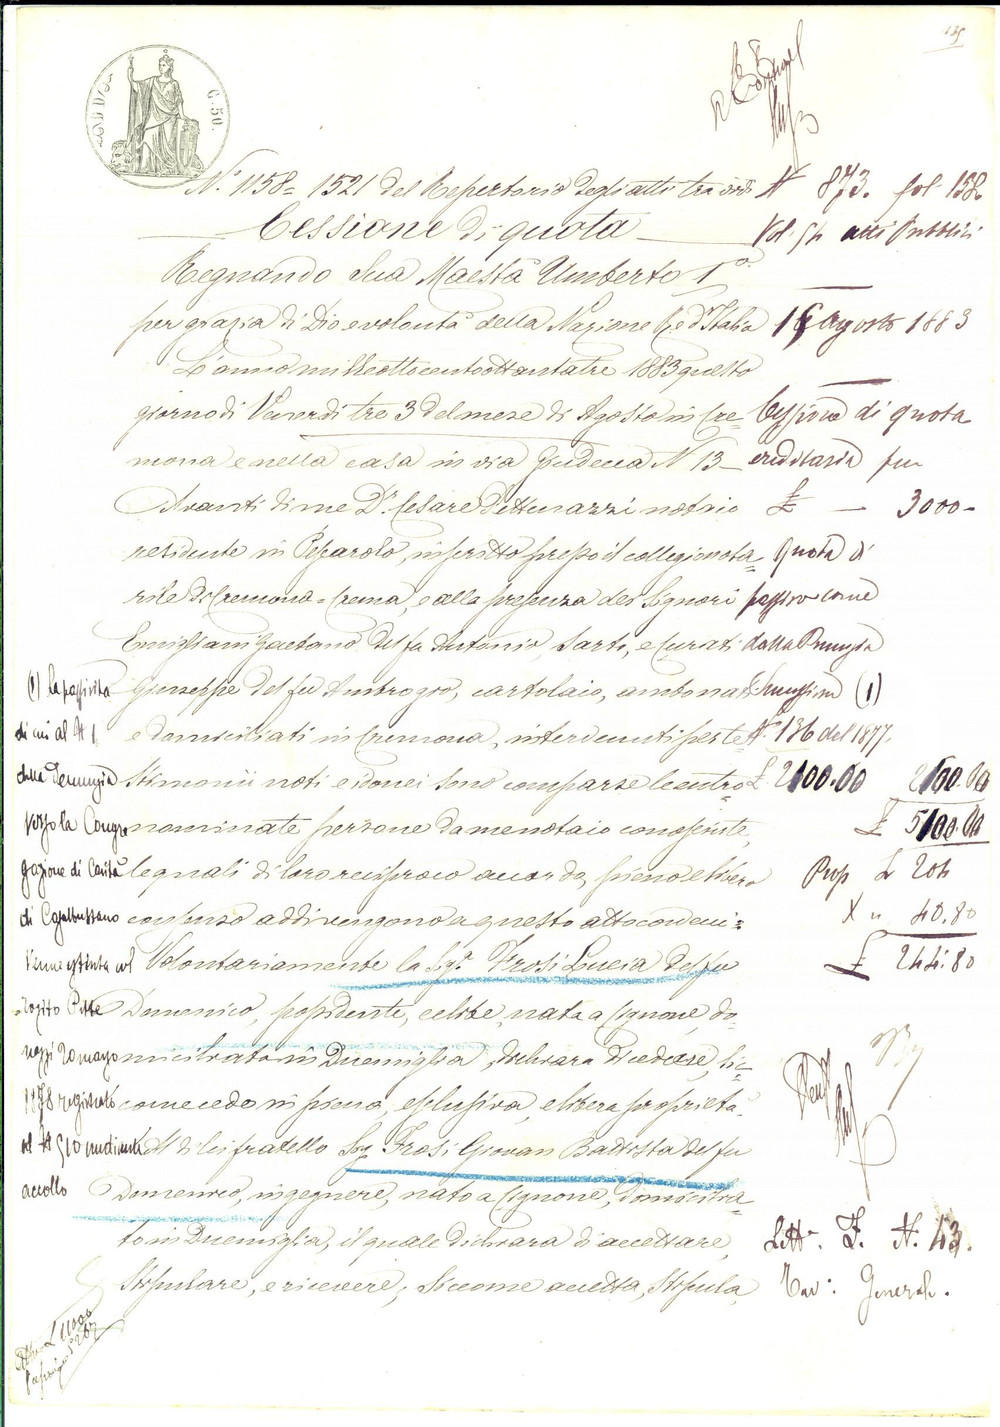 135
C. 50.
N.° 1158 = 1521 del Repertorio degli atti tra vivi
Cessione di quota
Regnando Sua Maestà Umberto I°
per grazia di Dio e volontà della Nazione Re d'Italia
L'anno milleottocentottantatre 1883 questo
giorno di Venerdì tre 3 del mese di Agosto in Cre=
mona e nella casa in via Giudecca N° 13 —
Avanti di me D.r Cesare Pettenazzi notaio
residente in Pescarolo, inscritto presso il collegio nota=
rile di Cremona = Crema, e alla presenza dei Signori
Emigliani Gaetano del fu Antonio, sarto, e Curati
Giuseppe del fu Ambrogio, cartolaio, ambo nati
e domiciliati in Cremona, intervenuti per te=
stimonii noti e idonei sono comparse le entro
nominate persone da me notaio conosciute,
le quali di loro reciproco accordo, pieno e libero
consenso addivengono a questo atto con cui =
Volontariamente la Sig.ra Frosi Lucia del fu
Domenico, possidente, celibe, nata a Cignone, do=
miciliata in Duemiglia, dichiara di cedere, sic=
come cede in piena, esclusiva, e libera proprietà
al di lei fratello Sig. Frosi Giovan Battista del fu
Domenico, ingegnere, nato a Cignone, domicilia=
to in Duemiglia, il quale dichiara di accettare,
stipulare, e ricevere, siccome accetta, stipula,
N 873. fol 158
Vol. 94 atti Pubblici
16 Agosto 1883
Cessione di quota
ereditaria per
£ — 3000 –
quota di
passivo come
dalla Denunzia
(1)
N. 136 del 1877.
£ 2100.00 2100.00
£ 5100.00
Prop £ 204
X " 40.80
£ 244.80
Litt.a F. N. 43.
Tav: General.
(1) la passività
di cui al N 1
della Denunzia
verso la Congre
gazione di Carità
di Casalbuttano
venne estinta col
rogito Pette
nazzi 20 marzo
1878 registrato
al N 510 mediante
accollo